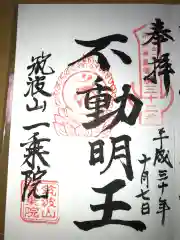 奉拝
平成三十年
十月七日
不動明王
筑波山一乗院